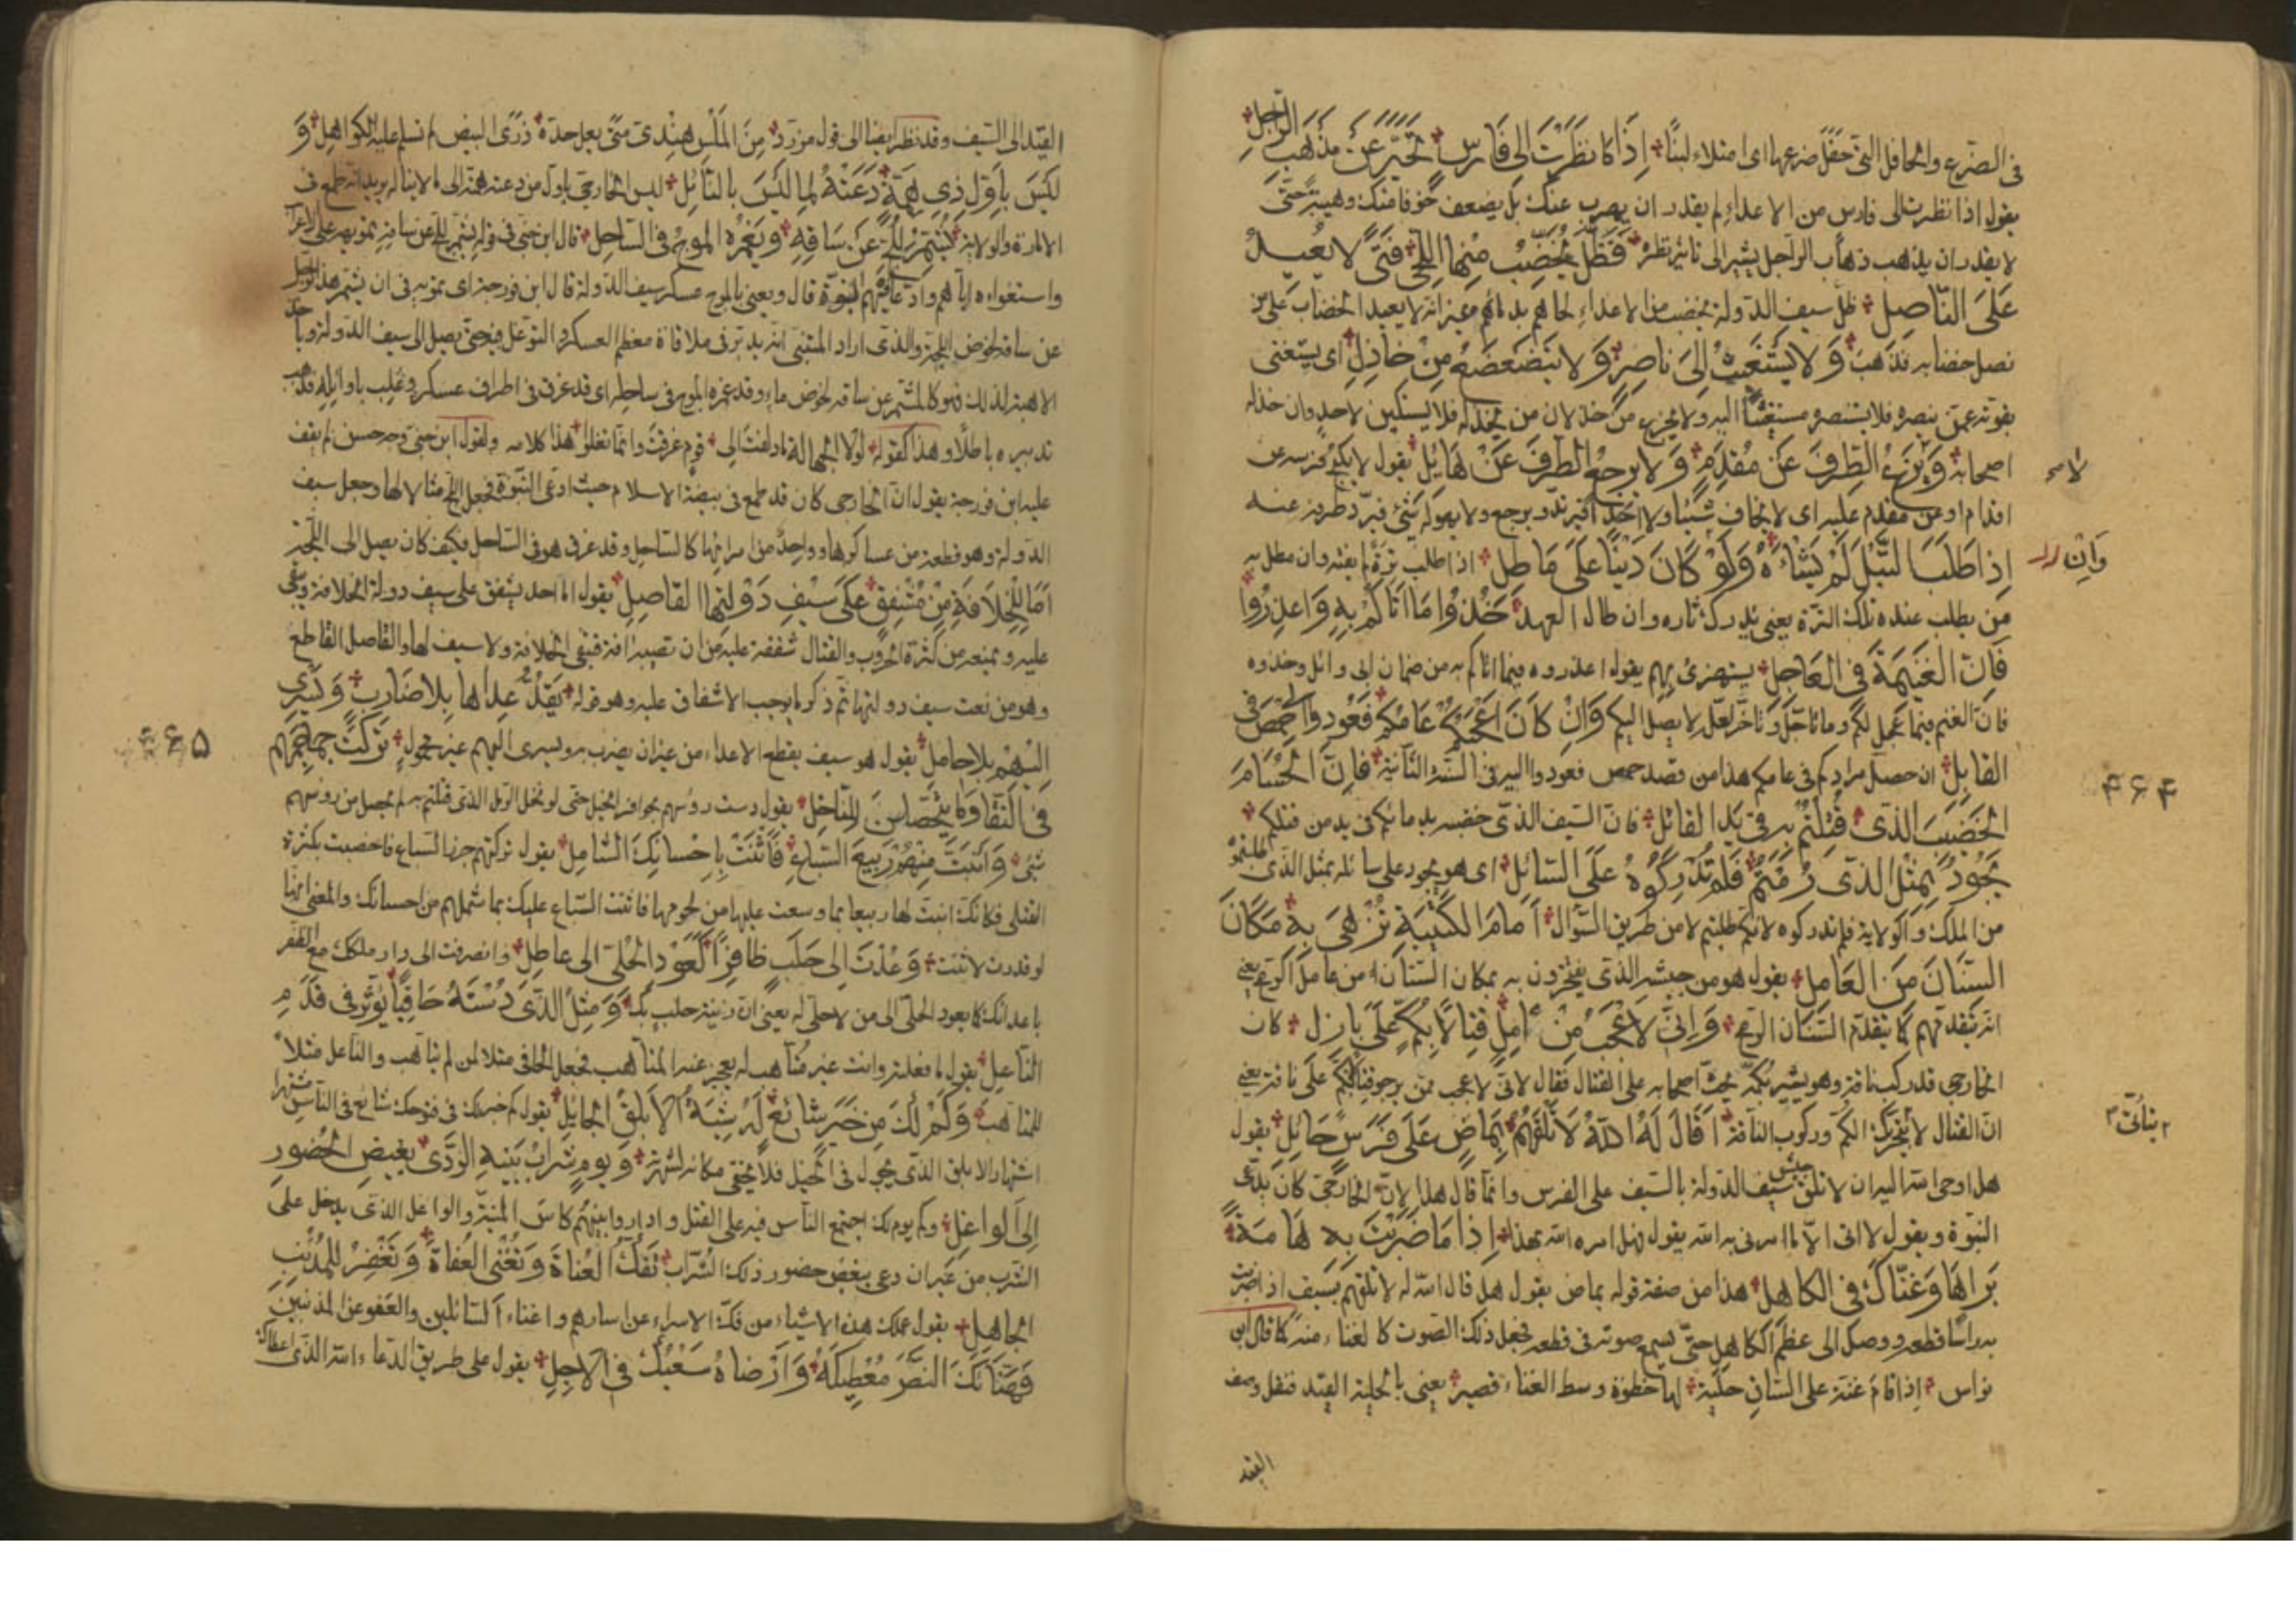 فى الضرع والحافل التى حفل ضرعها اى امتلاء لبنًا اِذَا مَا نَظَرْتَ اِلى فَارِسٍ تَحَيَّرَ عَنْ مَذْهَبِ الرّاجِلِ
يقول اذا نظرت الى فارس من الاعداء لم يقدر ان يهرب عنك بل يضعف خوفا منك وهيبة حتى
لا يقدر ان يذهب ذهاب الراجل يشير الى تاثير نظره فَظَلَّ يُخَضِّبُ مِنْهَا اللِّحَى فَتًى لا يُعِيدُ
عَلَى النّاصِلِ ظل سيف الدولة يخضب من الاعداء لحاهم بدمائهم غير انه لا يعيد الخضاب على من
نصل خضابه فذهب وَلا يَسْتَغيثُ اِلىَ ناصِرٍ وَلا يَتَضَعْضَعُ مِنْ خاذِلِ اى يستغنى
بقوته عمن ينصره فلا يستنصره مستغيثًا اليه ولا يجزع من خذلان من يخذله فلا يستكين لاحد وان خذله
اصحابه وَلا يَزَعُ الطِّرْفَ عَنْ مُقْدَمٍ وَلا يَرْجِعُ الطَّرْفَ عَنْ هَائِلِ يقول لا يكبح فرسه عن
اقدام او عن مقدم عليه اى لا يخاف شيئا ولا احدا فيرتد ويرجع ولا يهوله شئ فيرد طرفه عنه
اِذا طَلَبَ التَّبْلَ لَمْ يَشْأَهُ وَلَوْ كَانَ دَيْنًا عَلَى مَاطِلِ اذا طلب ترة لم يفته وان مطل به
وَاِنْ
من يطلب عنده تلك الترة يعنى يدرك ثاره وان طال العهد خُذُوا مَا اَتَاكُمْ بِهِ وَاعْذِرُوا
فَاِنَّ الغَنِيمَةَ فِى العَاجِلِ يستهزئ بهم يقول اعذروه فيما اتاكم به من ضمان ابى وائل وخذوه
فان الغنم فيما عجل لكم وما تاجل وتاخر لعله لا يصل اليكم وَاِنْ كَانَ اَعْجَبَكُمْ عَامُكُمْ فَعُودُوا اِلَى حِمْصَ فِى
القابِلِ ان حصل مرادكم فى عامكم هذا من قصد حمص فعودوا اليه فى السنة الثانية فَاِنَّ الحُسَامَ
۴۶۴
الخَضِيبَ الذى قُتِلْتُمْ بِهِ فى يَدِ القاتِلِ فان السيف الذى خضب بدمائكم فى يد من قتلكم
يَجُودُ بِمِثْلِ الذى رُمْتُمُ فَلَمْ تُدْرِكُوهُ عَلَى السّائِلِ اى هو يجود على سائله بمثل الذى طلبتموه
من الملك والولاية فلم تدركوه لانكم طلبتم لا من طريق السؤال اَمَامَ الكَتِيبَةِ تُزْهَى بِهِ مَكَانَ
السِّنَانِ مِنَ العَامِلِ يقول هو من جيشه الذى يفتخرون به بمكان السنان من عامل الرمح يعنى
انه تقدمهم كما يتقدم السنان الرمح وَاِنِّى لَاَعْجَبُ مِنْ آمِلٍ قِتالًا بِكُمٍّ عَلَى بازِلِ كان
الخارجى قد ركب ناقة وهو يشير بكمه يحث اصحابه على القتال فقال لانى لاعجب ممن يرجو قتالا بكم على ناقة يعنى
ان القتال لا يتحرك الكم وركوب الناقة اَقَالَ لَهُ اللهُ لا تَلْقَهُمْ بِمَاضٍ عَلَى فَرَسٍ حَائِلِ يقول
هل اوحى الله اليه ان لا تلق جيش سيف الدولة بالسيف على الفرس وانما قال هذا لان الخارجى كان يدعى
النبوة ويقول لا اتى الا ما امرنى به الله يقول فهل امره الله بهذا اِذا مَا ضَرَبْتَ بِهِ هَامَةً
بَرَاهَا وَغَنَّاكَ فِى الكاهِلِ هذا من صفة قوله بماض يقول هل قال الله له لا تلقهم بسيف اذا ضربت
به راسا قطعه ووصل الى عظم الكاهل حتى يسمع صوته فى قطعه فجعل ذلك الصوت كالغناء منه كما قال ابو
نواس اذا قام غنته على الساق حلية لها خطوه وسط الغناء قصير يعنى بالحلية القيد فنقل وصف
القيد
القيد الى السيف وقد نظر ايضا الى قول مزرد مِنَ المُلْسِ هِنْدِىّ مَتَى يعل حدّه ذرى البيض لم تسلم عليه الكواهل وَ
لَيْسَ بِاَوَّلِ ذِى هِمَّةٍ دَعَتْهُ لِمَا لَيْسَ بِالنّائِلِ ليس الخارجى باول من دعته همته الى ما لا يناله يريد انه طمع فى
الامارة والولاية يُشَمِّرُ لِلُّجِّ عَنْ سَاقِهِ وَيَغْمُرُهُ المَوْجُ فِى السّاحِلِ قال ابن جنى فى قوله يشمر للج عن ساقه تمويهه على الاعراب
واستغواءه اياهم وادعاؤه فيهم النبوة قال ويعنى بالموج عسكر سيف الدولة قال ابن فورجة اى تمويه فى ان يشمر هذا الرجل
عن ساقه لخوض اللجة والذى اراد المتنبى انه يدبر فى ملاقاة معظم العسكر والتوغل فيه حتى يصل الى سيف الدولة وياخذ
الاهبة لذلك فهو كالمشمر عن ساقه لخوض ماء وقد غمره الموج فى ساحله اى قد غرق فى اطراف عسكره وغلب باوائله فذهب
تدبيره باطلا وهذا كقوله لولا الجهالة ما دلفت الى قوم غرقت وانما تفلوا هذا كلامه ولقول ابن جنى وجه حسن لم يقف
عليه ابن فورجة يقول ان الخارجى كان قد طمع فى بيضة الاسلام حيث ادعى النبوة فجعل اللج مثالا لها وجعل سيف
الدولة وهو قطعة من عساكرها وواحد من امرائها كالساحل وقد غرق هو فى الساحل فكيف كان يصل الى اللجة
اَمَا لِلْخِلافَةِ مِنْ مُشْفِقٍ عَلَى سَيْفِ دَوْلَتِهَا الفاصِلِ يقول اما احد يشفق على سيف دولة الخلافة ويبقى
عليه ويمنعه من كثرة الحروب والقتال شفقة عليه من ان تصيبه افة فتبقى الخلافة ولا سيف لها والفاصل القاطع
وهو من نعت سيف دولتها ثم ذكر ما يوجب الاشفاق عليه وهو قوله يَقُدُّ عِدَاهَا بِلا ضَارِبٍ وَيَسْرِى
اِلَيْهِمْ بِلا حامِلِ يقول هو سيف يقطع الاعداء من غير ان يضرب به ويسرى اليهم غير محمول تَرَكْتَ جَمَاجِمَهُمْ
۴۶۵
فى النَّقَا وَمَا يَتَحَصَّلْنَ لِلنّاخِلِ يقول دست رؤسهم بحوافر الخيل حتى لو نخل الرمل الذى قتلتهم به لم يحصل من رؤسهم
شئ وَاَنْبَتَّ مِنْهُمْ رَبِيعَ السِّبَاعِ فَاَثْنَتْ بِاِحْسَانِكَ الشّامِلِ يقول تركتهم جزر السباع فاخصبت بكثرة
القتلى فكانك انبت لها ربيعا بما وسعت عليها من لحومها فاثنت السباع عليك بما شملهم من احسانك والمعنى انها
لو قدرت لاثنت وَعُدْتَ اِلى حَلَبٍ ظَافِرًا كَعَوْدِ الحُلِىِّ الى عاطِلِ وانصرفت الى دار ملكك مع الظفر
باعدائك كما يعود الحلى الى من لا حلى له يعنى ان زينة حلب بك وَمِثْلُ الذى دُسْتَهُ حَافِيًا يُؤَثِّرُ فى قَدَمِ
النّاعِلِ يقول ما فعلته وانت غير متاهب له يعجز عنه المتاهب فجعل الحافى مثلا لمن لم يتاهب والناعل مثلا
للمتاهب وَكَمْ لَكَ مِنْ خَبَرٍ شائِعٍ لَهُ شِيَةُ الاَبْلَقِ الجائِلِ يقول كم خبر لك فى فتوحك شايع فى الناس مشتهرا
اشتهار الابلق الذى يجول فى الخيل فلا يخفى مكانه لشهرته وَيَوْمٍ شَرَابُ بَنِيهِ الرَّدَى بَغِيضِ الحُضُورِ
اِلَى الواغِلِ وكم يوم لك اجتمع الناس فيه على القتل واداروا بينهم كاس المنية والواغل الذى يدخل على
الشرب من غير ان دعى يبغض حضور ذلك الشراب تَفُكُّ العُنَاةَ وَتُغْنِى العُفاةَ وَتَغْفِرُ لِلْمُذْنِبِ
الجاهِلِ يقول عملك هذه الاشياء من فك الاسراء عن اسارهم واغناء السائلين والعفو عن المذنبين
فَهَنَّاكَ النَّصْرَ مُعْطِيكَهُ وَاَرْضَاهُ سَعْيُكَ فى الآجِلِ يقول على طريق الدعاء الله الذى اعطاك